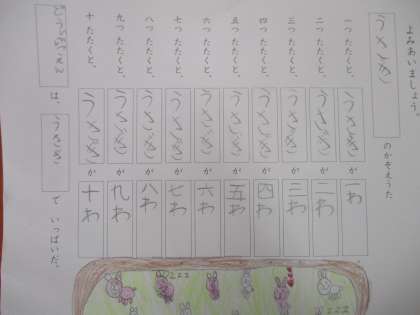 よみあいましょう。
うさぎ のかぞえうた
一つ たたくと、 うさぎ が 一わ
二つ たたくと、 うさぎ が 二わ
三つ たたくと、 うさぎ が 三わ
四つ たたくと、 うさぎ が 四わ
五つ たたくと、 うさぎ が 五わ
六つ たたくと、 うさぎ が 六わ
七つ たたくと、 うさぎ が 七わ
八つ たたくと、 うさぎ が 八わ
九つ たたくと、 うさぎ が 九わ
十 たたくと、 うさぎ が 十わ
どうぶつえん は、 うさぎ で いっぱいだ。